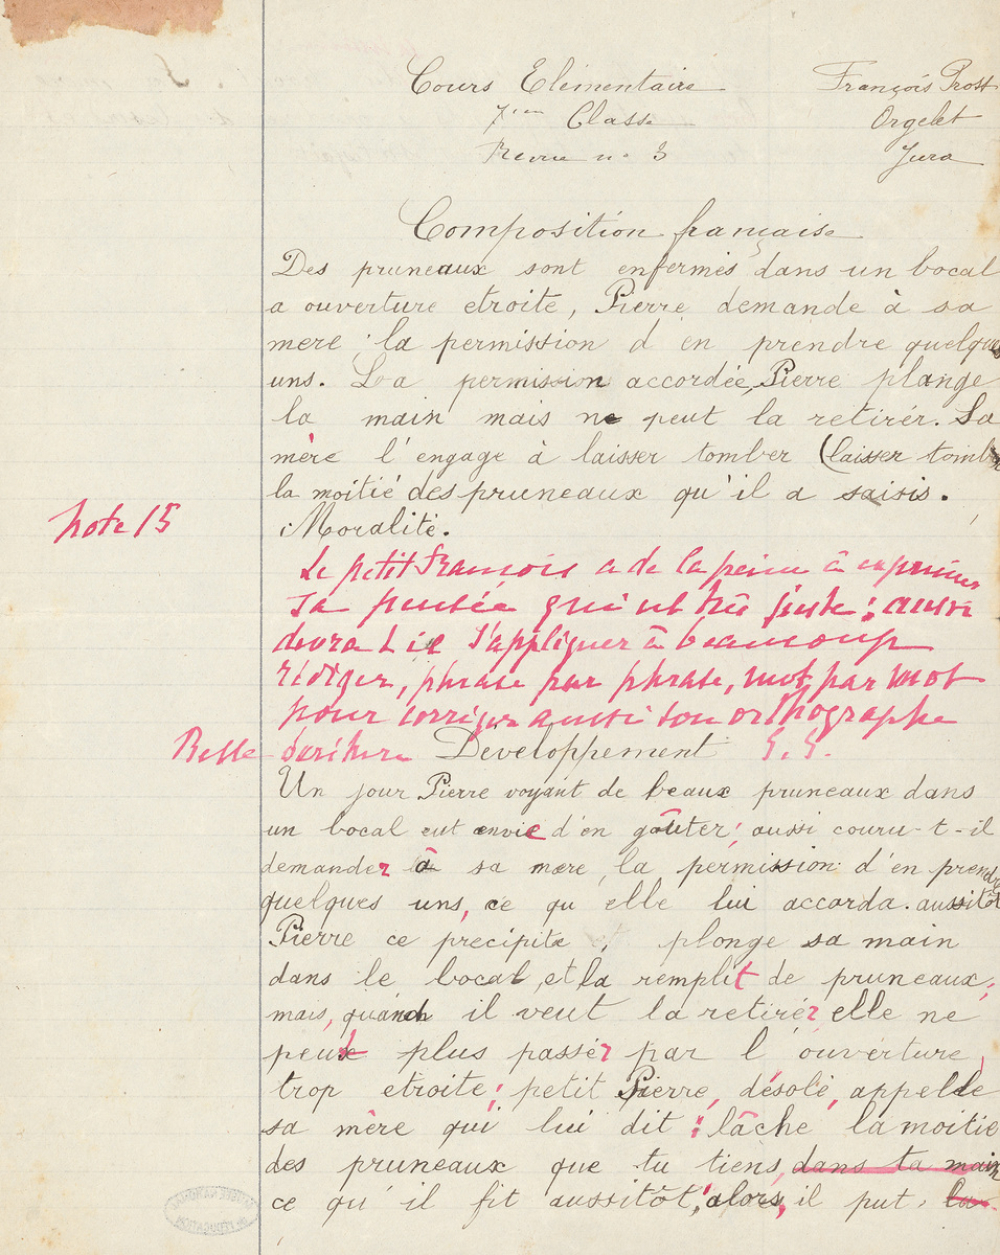 Cours Elementaire François Prost
7ème Classe Orgelet
Revue n. 3 Jura
Composition française
Des pruneaux sont enfermés dans un bocal
a ouverture etroite, Pierre demande à sa
mere la permission d en prendre quelques
uns. La permission accordée, Pierre plange
la main mais ne peut la retirér. Sa
mère l'engage à laisser tomber (laisser tomber
la moitié des pruneaux qu'il a saisis.
Note 15
Moralité.
Le petit François a de la peine à exprimer
sa pensée qui est très juste ; aussi
devra t il s'appliquer à beaucoup
rédiger, phrase par phrase, mot par mot
pour corriger aussi son orthographe
Belle écriture Développement G. G.
Un jour Pierre voyant de beaux pruneaux dans
un bocal eut envie d'en goûter ; aussi couru-t-il
demander à sa mère, la permission d'en prendre
quelques uns, ce qu elle lui accorda. aussitôt
Pierre ce precipite, plonge sa main
dans le bocal, et la remplit de pruneaux ;
mais, quand il veut la retirér, elle ne
peut plus passér par l ouverture,
trop etroite ; petit Pierre, désolé, appelle
sa mère qui lui dit : lâche la moitié
des pruneaux que tu tiens, dans ta main
ce qu'il fit aussitôt ; alors, il put, la